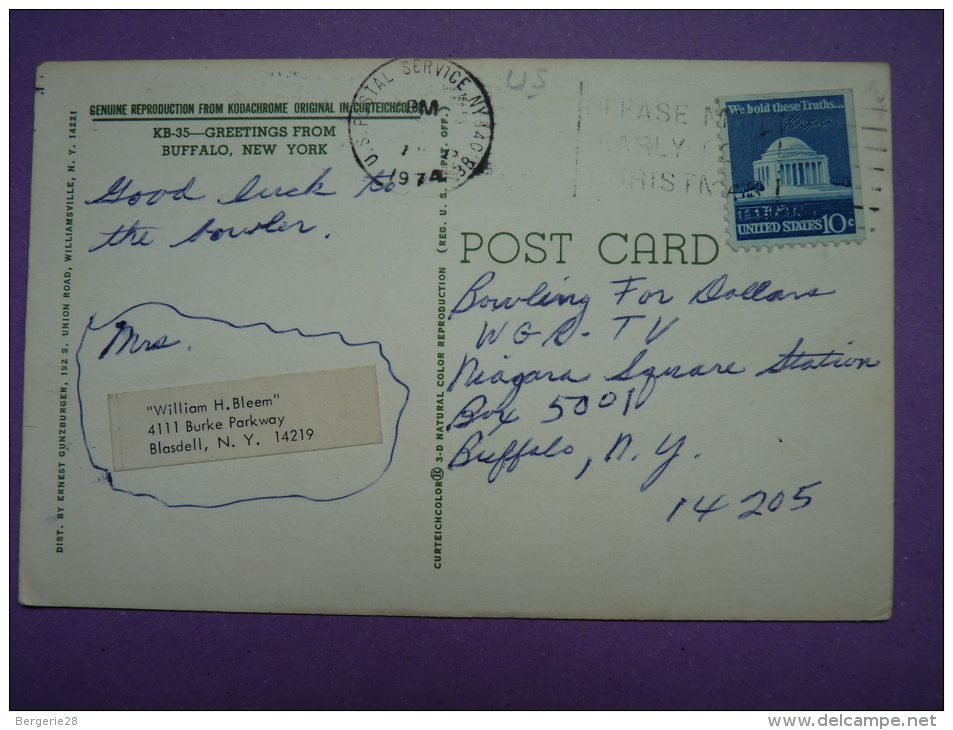 GENUINE REPRODUCTION FROM KODACHROME ORIGINAL IN CURTEICHCOLOR
KB-35—GREETINGS FROM
BUFFALO, NEW YORK
Good luck to
the bowler.
Mrs.
"William H. Bleem"
4111 Burke Parkway
Blasdell, N. Y. 14219
DIST. BY ERNEST GUNZBURGER, 192 S. UNION ROAD, WILLIAMSVILLE, N. Y. 14221
CURTEICHCOLOR® 3-D NATURAL COLOR REPRODUCTION (REG. U. S. PAT. OFF.)
U.S. POSTAL SERVICE NY
PM
1974
US
EASE
ARLY
RISTM
We hold these Truths...
UNITED STATES 10c
POST CARD
Bowling For Dollars
WGR-TV
Niagara Square Station
Box 5001
Buffalo, N.Y.
14205
Bergerie28
www.delcampe.net